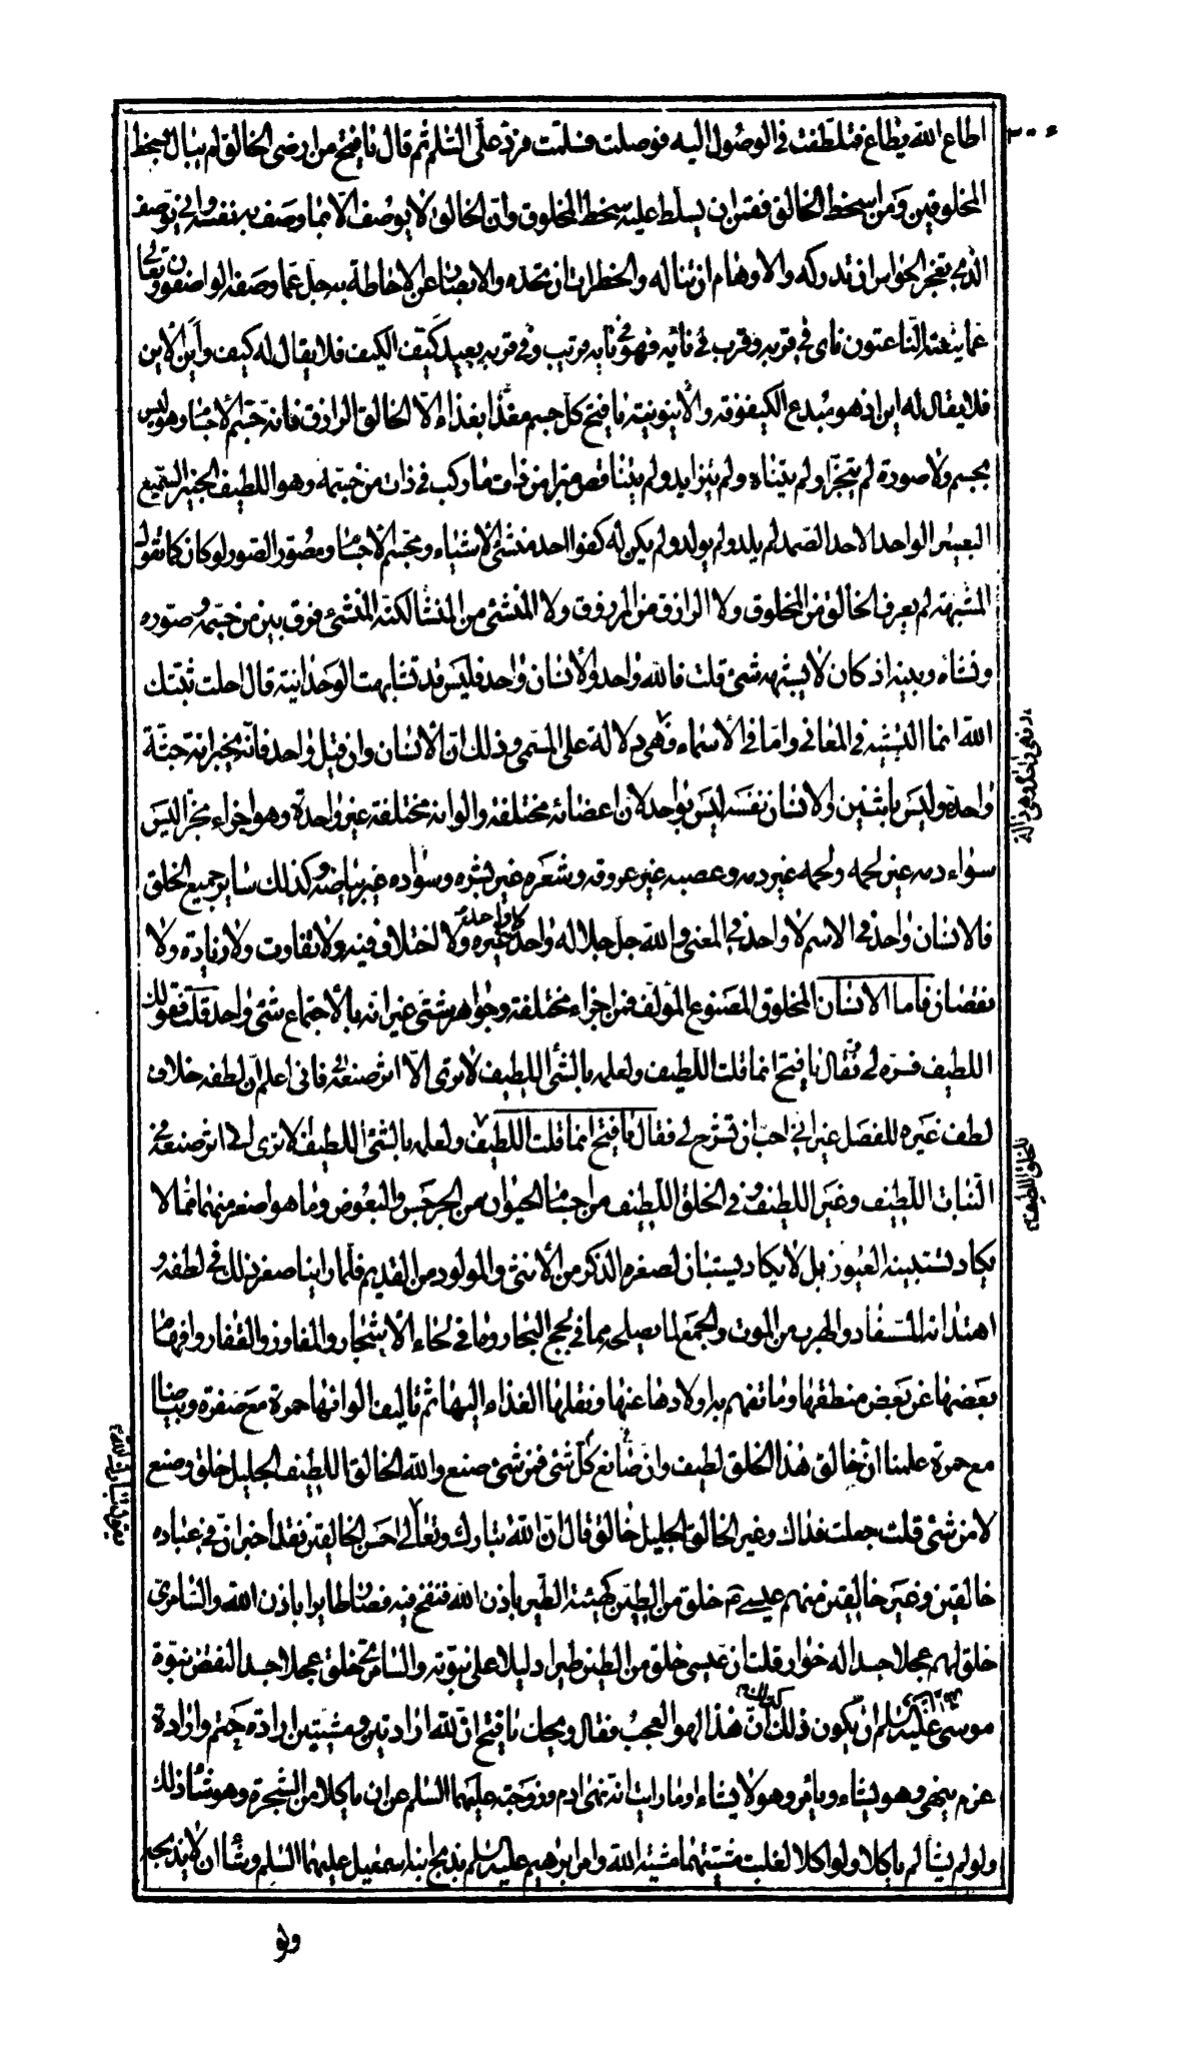 اطاع الله يطاع فتلطفت في الوصول اليه فوصلت فسلمت فرد علي السلم ثم قال يا فتح من ارضى الخالق لم يبال بسخط
المخلوقين ومن اسخط الخالق فقمن ان يسلط عليه سخط المخلوق وان الخالق لا يوصف الا بما وصف به نفسه واني يوصف
الذي يعجز الحواس ان تدركه والاوهام ان تناله والخطرات ان تحده والابصار عن الاحاطة به جل عما وصفه الواصفون وتعالى
عما ينعته الناعتون ناى في قربه وقرب في نائيه فهو في نايه قريب وفي قربه بعيد كيف الكيف فلا يقال له كيف واين الاين
فلا يقال له اين اذ هو مبدع الكيفوفه والاينونية يا فتح كل جسم مغذا بغذاء الا الخالق الرازق فانه جسم الاجسام وهو ليس
بجسم ولا صورة لم يتجزا ولم يتناه ولم يتزايد ولم يتناقص مبرا من ذات ما ركب في ذات من جسمه وهو اللطيف الخبير السميع
البصير الواحد الاحد الصمد لم يلد ولم يولد ولم يكن له كفوا احد منشئ الاشياء ومجسم الاجسام ومصور الصور لو كان كما تقول
المشبهة لم يعرف الخالق من المخلوق ولا الرازق من المرزوق ولا المنشئ من المنشا لكنه المنشئ فرق بين من جسمه وصوره
ونشاه وبينه اذ كان لا يشبهه شئ قلت فالله واحد والانسان واحد فليس قد تشابهت الوحدانية قال احلت ثبتك
الله انما التشبيه في المعاني واما في الاسماء فهى دلالة على المسمى وذلك ان الانسان وان قيل واحد فانه يخبر انه جثة
واحدة وليس باثنين والانسان نفسه ليس بواحد لان اعضائه مختلفة والوانه مختلفة غير واحدة وهو اجزاء مجزا ليس
سواء دمه غير لحمه ولحمه غير دمه وعصبه غير عروقه وشعره غير بشره وسواده غير بياضه وكذلك ساير جميع الخلق
فالانسان واحد في الاسم لا واحد في المعنى والله جل جلاله واحد لا واحد غيره ولا اختلاف فيه ولا تفاوت ولا زيادة ولا
نقصان فاما الانسان المخلوق المصنوع المؤلف فمن اجزاء مختلفة وجواهر شتى غير انه بالاجتماع شئ واحد قلت فقولك
اللطيف فسره لي فقال يا فتح انما قلت اللطيف ولعلمه بالشئ اللطيف لا ترى الا اثر صنعه فاني اعلم ان لطفه خلاف
لطف غيره للفصل غير اني احب ان تشرح لي فقال يا فتح انما قلت اللطيف ولعلمه بالشئ اللطيف الا ترى الى اثر صنعه في
النبات اللطيف وغير اللطيف وفي الخلق اللطيف من اجسام الحيوان من الجرجس والبعوض وما هو اصغر منهما مما لا
يكاد تستبينه العيون بل لا يكاد يستبان لصغره الذكر من الانثى والمولود من القديم فلما راينا صغر ذلك في لطفه و
اهتدائه للسفاد والهرب من الموت والجمع لما يصلحه مما في لجج البحار وما في لحاء الاشجار والمفاوز والقفار وافهام
بعضها عن بعض منطقها وما تفهم به اولادها عنها ونقلها الغذاء اليها ثم تاليف الوانها حمرة مع صفرة وبياضا
مع حمرة علمنا ان خالق هذا الخلق لطيف وان صانع كل شئ فمن شئ صنع والله الخالق اللطيف الجليل خلق وصنع
لا من شئ قلت جعلت فداك وغير الخالق الجليل خالق قال ان الله تبارك وتعالى احسن الخالقين فقد اخبر ان في عباده
خالقين وغير خالقين منهم عيسى ع خلق من الطين كهيئة الطير باذن الله فنفخ فيه فصار طايرا باذن الله والسامري
خلق لهم عجلا جسدا له خوار قلت ان عيسى خلق من الطين طيرا دليلا على نبوته والسامري خلق عجلا جسدا لنقض نبوة
موسى عليه السلم ان يكون ذلك كذلك ان هذا لهو العجب فقال ويحك يا فتح ان لله ارادتين ومشيتين ارادة حتم وارادة
عزم ينهى وهو يشاء ويامر وهو لا يشاء اوما رايت انه نهى ادم وزوجته عليهما السلم عن ان ياكلا من الشجرة وهو شاء ذلك
ولو لم يشا لم ياكلا ولو اكلا لغلبت مشيتهما مشية الله وامر ابرهيم عليه السلم بذبح ابنه اسمعيل عليهما السلم وشاء ان لا يذبحه
ولو